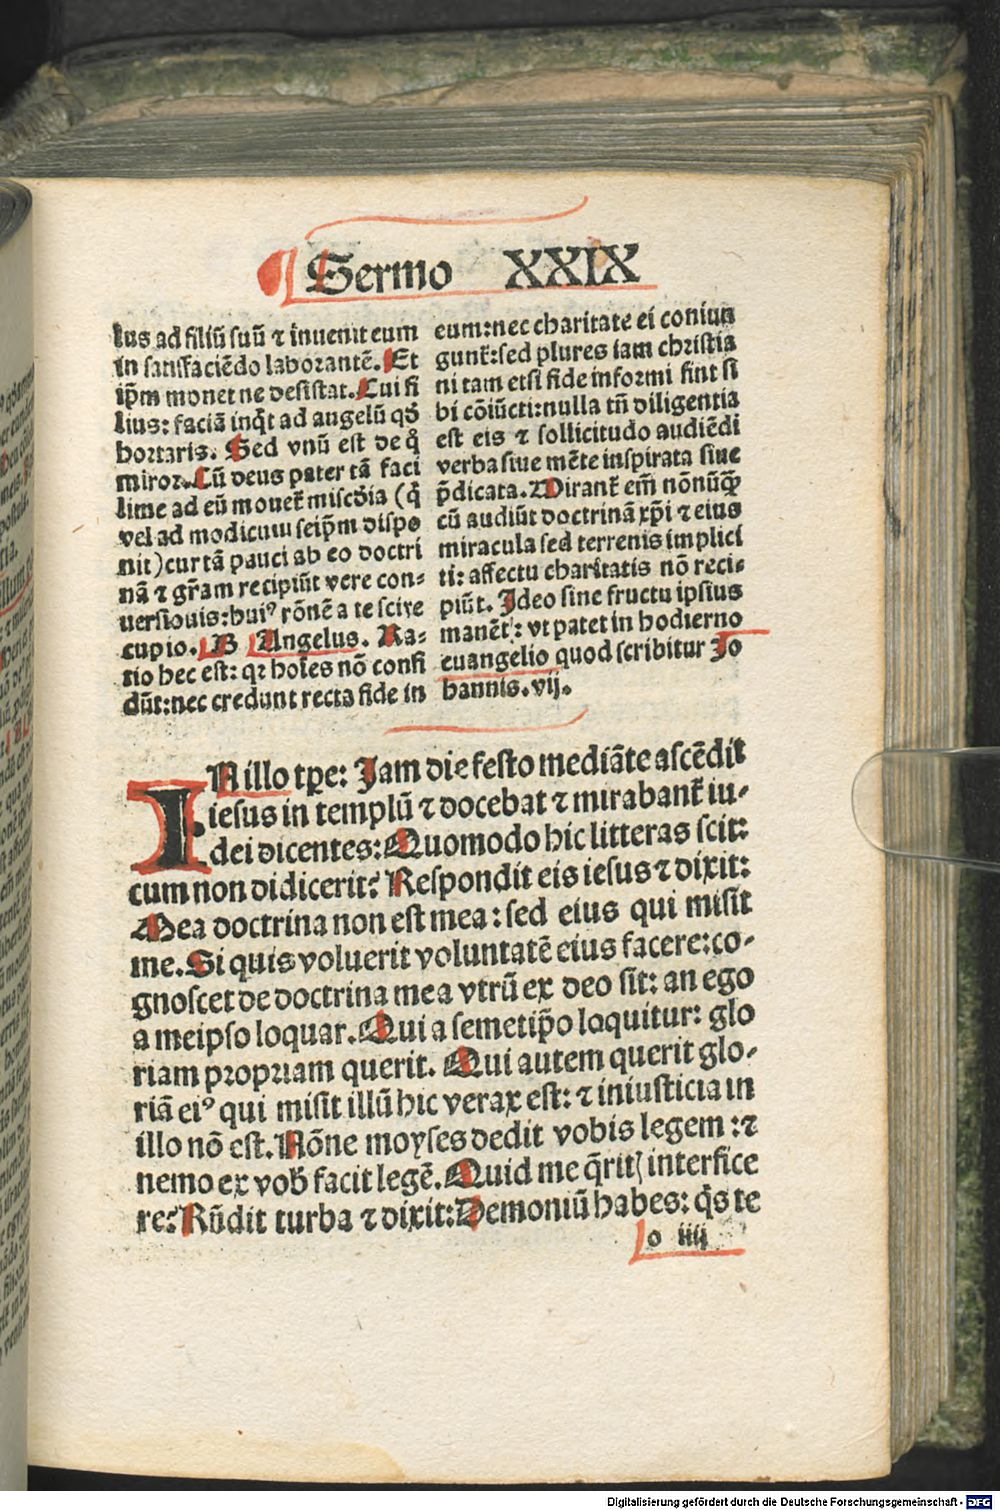 Sermo XXIX
lus ad filiū suū ⁊ inuenit eum
in satisfaciēdo laborantē. Et
ip̄m monet ne desistat. Cui fi
lius: faciā inq̇t ad angelū qd̓
hortaris. Sed vnū est de q̊
miror. Cū deus pater tā faci
lime ad eū mouet᷑ miscd̓ia (q̇
vel ad modicuū seip̄m dispo
nit) cur tā pauci ab eo doctri
nā ⁊ gr̄am recipiūt vere con-
uersiouis: huiꝰ rōnē a te scire
cupio. B Angelus. Ra-
tio hec est: qꝛ hoīes nō confi
dūt: nec credunt recta fide in
eum: nec charitate ei coniun
gunt᷑: sed plures iam christia
ni tam etsi fide informi sint si
bi cōiūcti: nulla tn̄ diligentia
est eis ⁊ sollicitudo audiēdi
verba siue mēte inspirata siue
p̄dicata. Mirant᷑ em̄ nōnūꝙ̄
cū audiūt doctrinā xp̄i ⁊ eius
miracula sed terrenis implici
ti: affectu charitatis nō reci-
piūt. Ideo sine fructu ipsius
manēt: vt patet in hodierno
euangelio quod scribitur Jo
hannis. vij.
IN illo tp̄e: Jam die festo mediāte ascēdit
iesus in templū ⁊ docebat ⁊ mirabant᷑ iu-
dei dicentes: Quomodo hic litteras scit:
cum non didicerit? Respondit eis iesus ⁊ dixit:
Mea doctrina non est mea: sed eius qui misit
me. Si quis voluerit voluntatē eius facere: co-
gnoscet de doctrina mea vtrū ex deo sit: an ego
a meipso loquar. Qui a semetip̄o loquitur: glo
riam propriam querit. Qui autem querit glo-
riā eiꝰ qui misit illū hic verax est: ⁊ iniusticia in
illo nō est. Nōne moyses dedit vobis legem: ⁊
nemo ex vob̓ facit legē. Quid me q̄rit᷑ interfice
re? Rn̄dit turba ⁊ dixit: Demoniū habes: q̇s te
o iiij
Digitalisierung gefördert durch die Deutsche Forschungsgemeinschaft - DFG